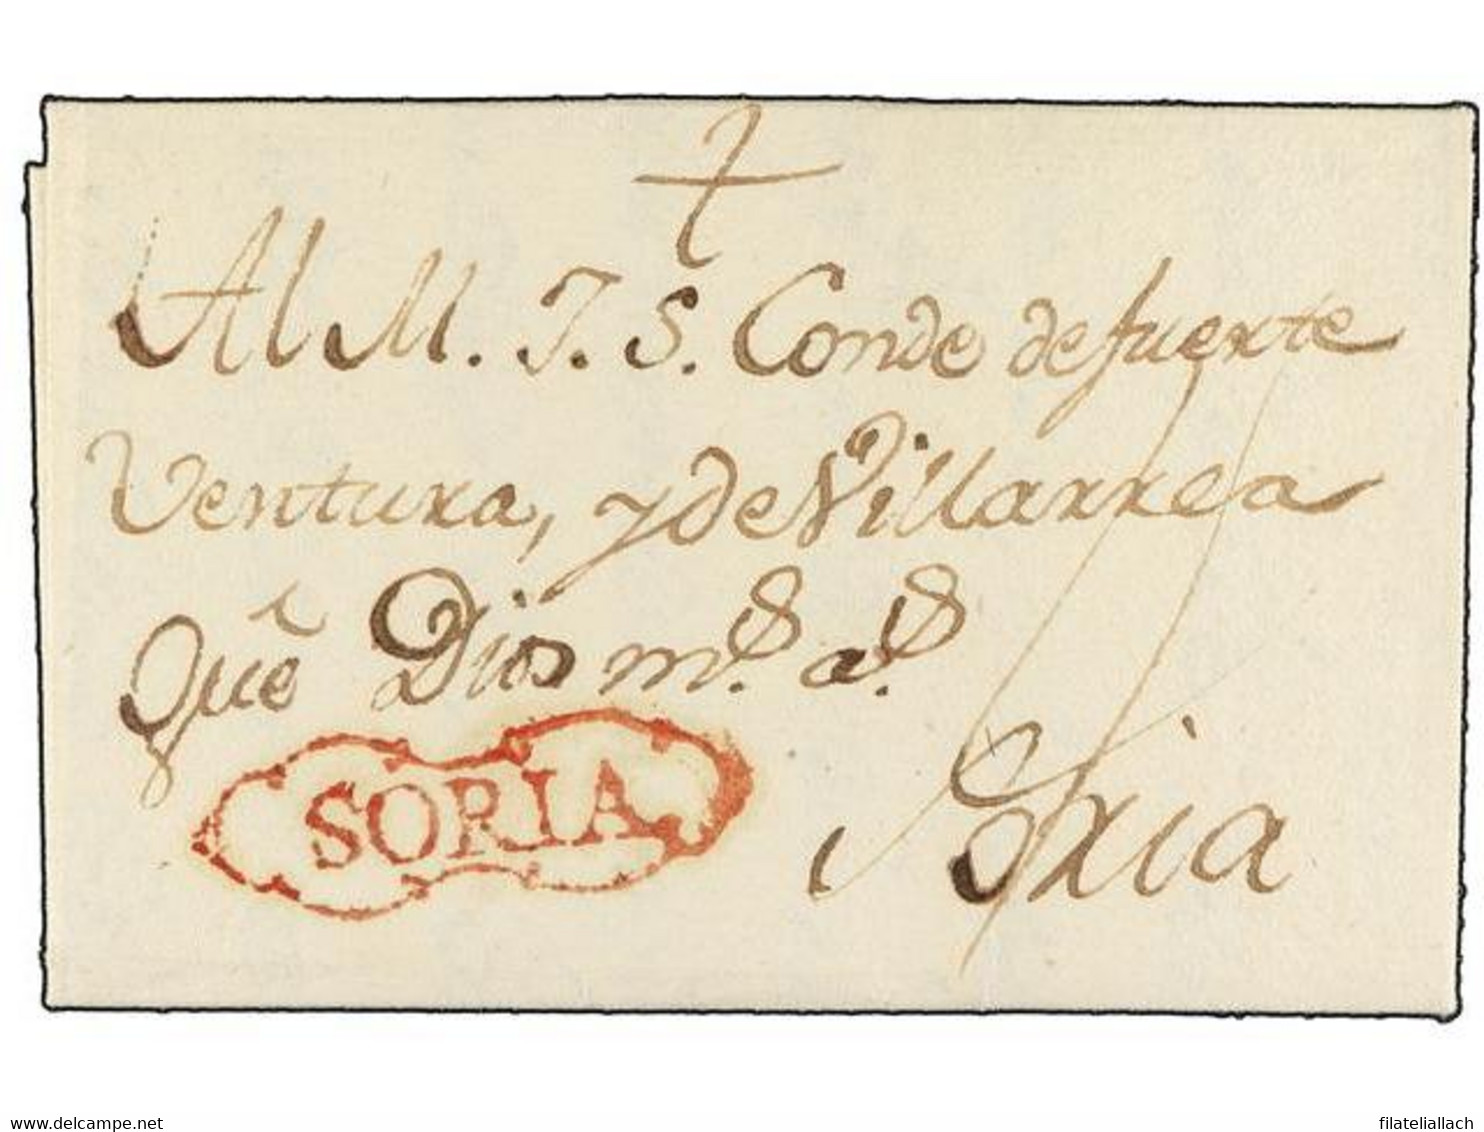 †
Al M. I. S. Conde de fuerte
Ventura, y de Villarrea
Quē Dios m.s a.s
SORIA
Soria
delcampe.net
filateliallach